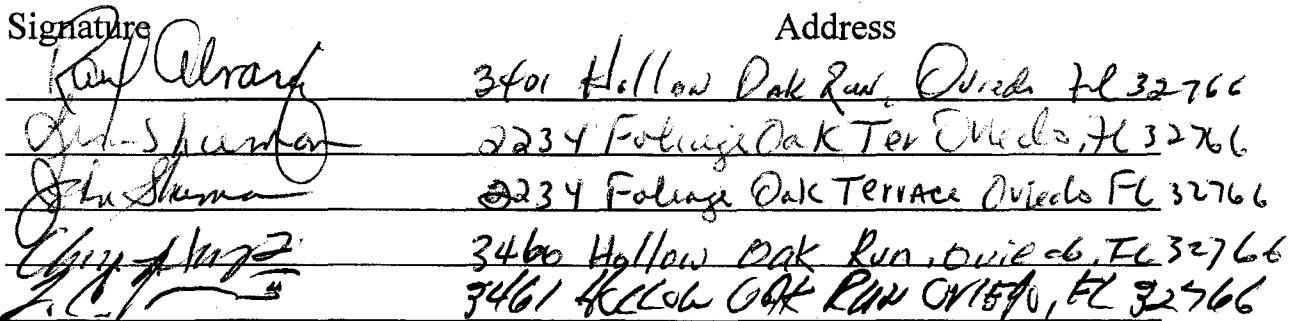 Signature Address
3401 Hollow Oak Run, Oviedo Fl 32766
2234 Foliage Oak Ter Oviedo, FL 32766
John Shuman 2234 Foliage Oak Terrace Oviedo FL 32766
3460 Hollow Oak Run, Oviedo, FL 32766
3461 Hollow Oak Run Oviedo, FL 32766